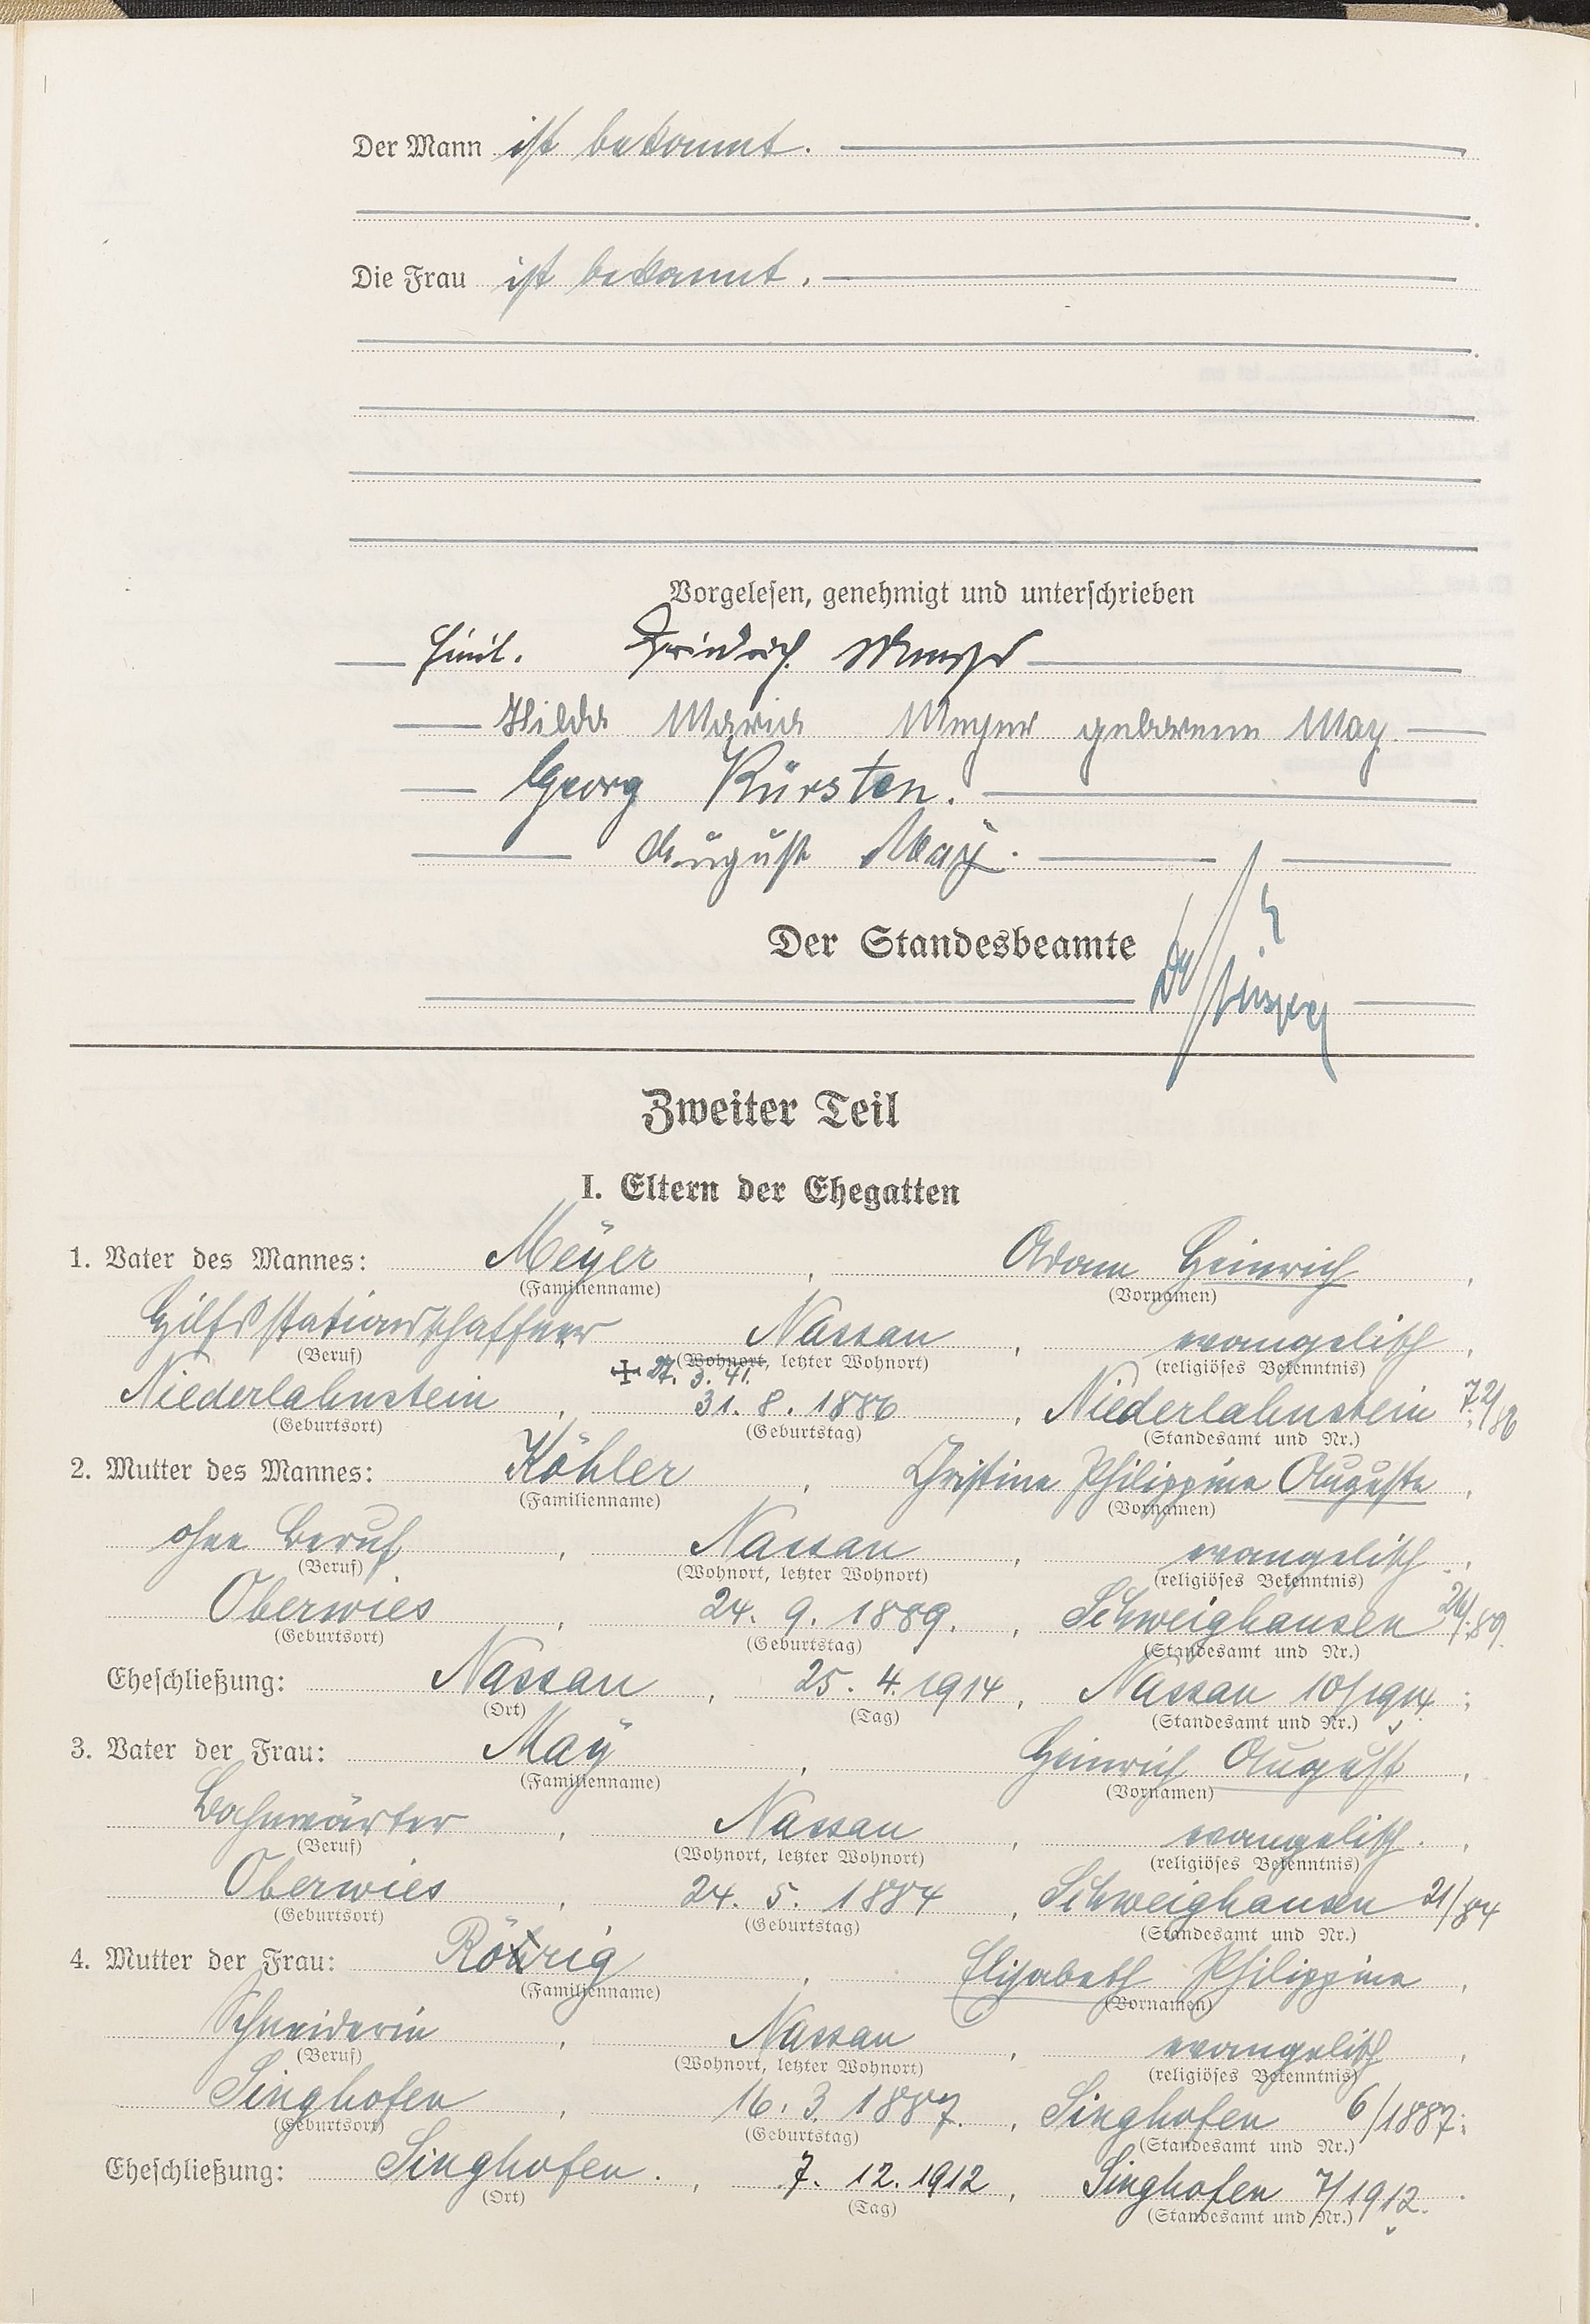 Der Mann ist bekannt.
Die Frau ist bekannt.
Vorgelesen, genehmigt und unterschrieben
Emil. Friedrich Meyer
Hilda Maria Meyer geborene May
Georg Kürsten.
August Maÿ.
Der Standesbeamte
Zweiter Teil
I. Eltern der Ehegatten
1. Vater des Mannes: Meÿer, Adam Heinrich,
(Familienname) (Vornamen)
Hilfsstationsschaffner Nassau, evangelisch,
(Beruf) (Wohnort, letzter Wohnort) (religiöses Bekenntnis)
+ 27. 3. 41.
Niederlahnstein, 31. 8. 1886, Niederlahnstein 72/86
(Geburtsort) (Geburtstag) (Standesamt und Nr.)
2. Mutter des Mannes: Köhler, Christine Philippine Auguste,
(Familienname) (Vornamen)
ohne Beruf, Nassau, evangelisch,
(Beruf) (Wohnort, letzter Wohnort) (religiöses Bekenntnis)
Oberwies, 24. 9. 1889., Schweighausen 26/89.
(Geburtsort) (Geburtstag) (Standesamt und Nr.)
Eheschließung: Nassau, 25. 4. 1914, Nassau 10/1914;
(Ort) (Tag) (Standesamt und Nr.)
3. Vater der Frau: Maÿ, Heinrich August,
(Familienname) (Vornamen)
Bahnwärter, Nassau, evangelisch.,
(Beruf) (Wohnort, letzter Wohnort) (religiöses Bekenntnis)
Oberwies, 24. 5. 1884, Schweighausen 21/84
(Geburtsort) (Geburtstag) (Standesamt und Nr.)
4. Mutter der Frau: Röhrig, Elisabeth Philippine,
(Familienname) (Vornamen)
Schneiderin, Nassau, evangelisch,
(Beruf) (Wohnort, letzter Wohnort) (religiöses Bekenntnis)
Singhofen, 16. 3. 1887., Singhofen 6/1887;
(Geburtsort) (Geburtstag) (Standesamt und Nr.)
Eheschließung: Singhofen., 7. 12. 1912, Singhofen 7/1912.
(Ort) (Tag) (Standesamt und Nr.)